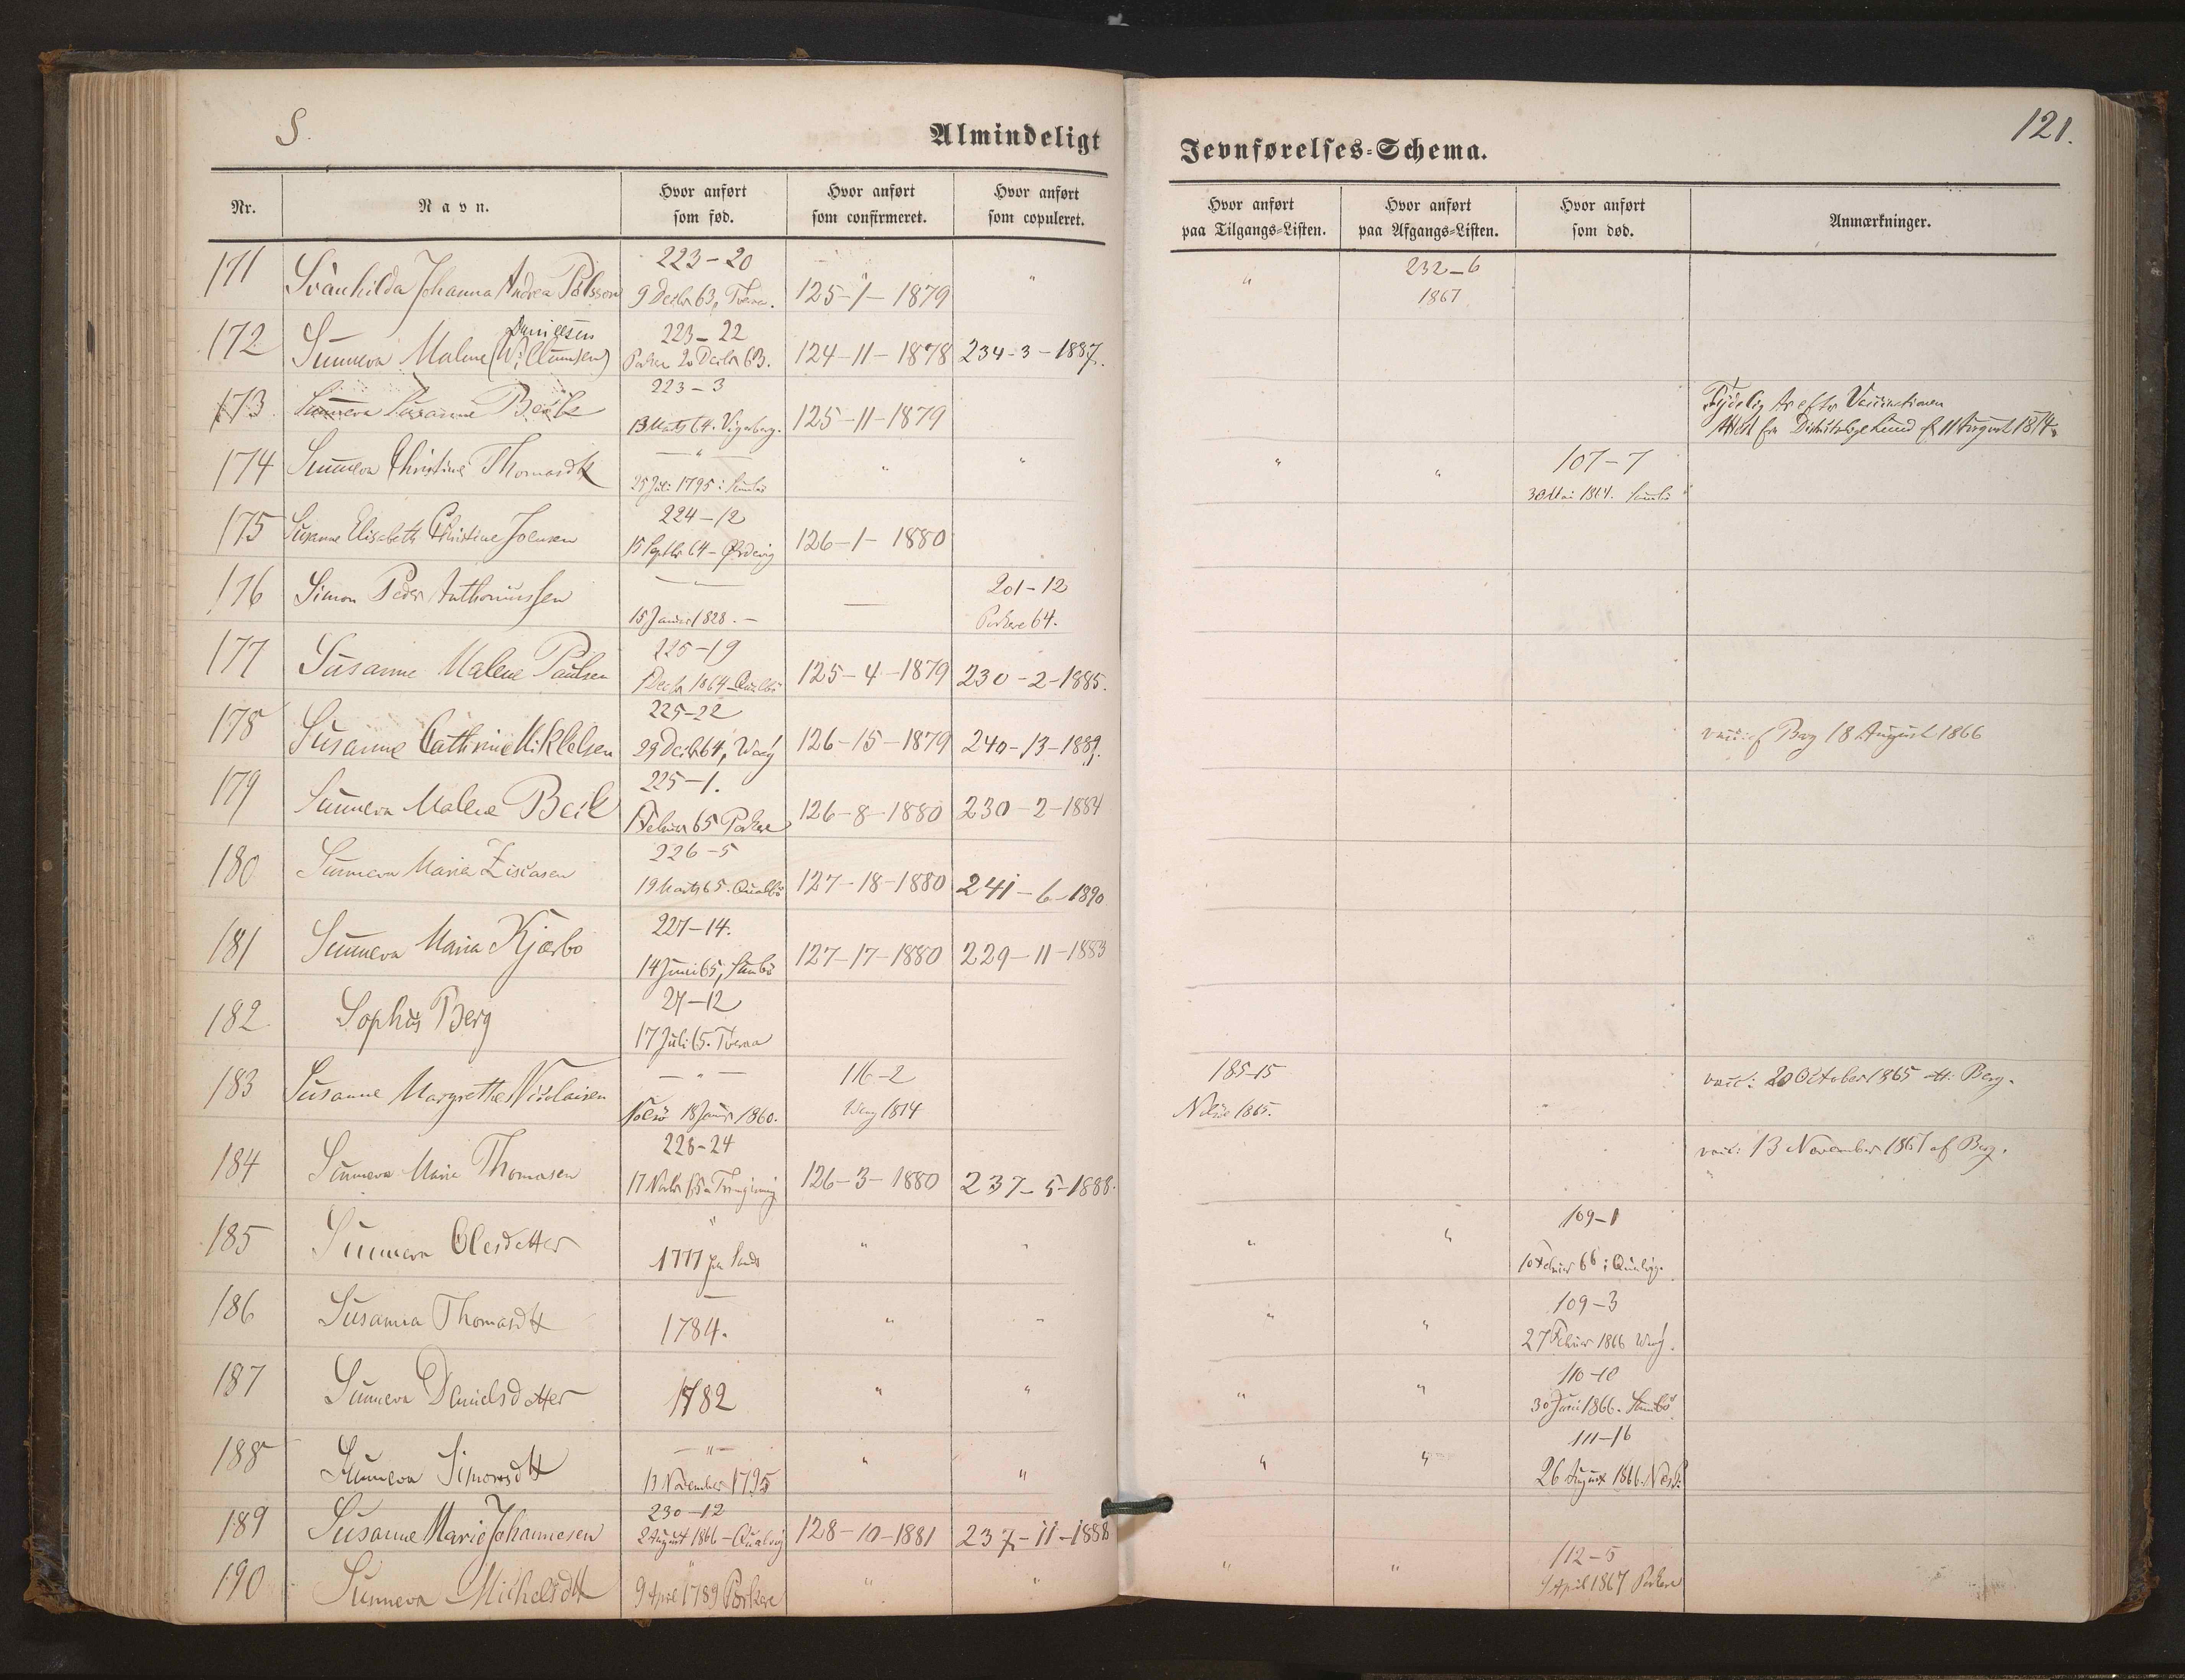 S.
Almindeligt
Jevnførelses-Schema.
121.
Nr.
Navn.
Hvor anført som fød.
Hvor anført som confirmeret.
Hvor anført som copuleret.
Hvor anført paa Tilgangs-Listen.
Hvor anført paa Afgangs-Listen.
Hvor anført som død.
Anmærkninger.
171 Svanhilda Johanna Andrea Polsson 223-20 125-1-1879 " " 232-6
9 Decbr 63, Tveraa. 1867
Danielsen 223-22
172 Sunneva Malene (Willumsen) Porkere 20 Decbr 63. 124-11-1878 234-3-1887.
173 Sunneva Susanne Beck 223-3 125-11-1879 Tydelig Ar efter Vaccinationen
13 Marts 64. Vaagsberg. Attest fra 11 August 1874.
174 Sunneva Christine Thomasdtt — " — " " " " 107-7
25 Juli 1795 i Sumbø 30 Mai 1864. Sumbø
175 Susanne Elisabeth Christine Joensen 224-12 126-1-1880
15 Septbr 64 - Ørdevig
176 Simon Peder Anthoniussen — — 201-12
15 Januar 1828. — Porkere 64.
177 Susanne Malene Paulsen 225-19 125-4-1879 230-2-1885.
1 Decbr 1864 - Qualbø
178 Susanne Cathrine Mikkelsen 225-22 126-15-1879 240-13-1889. vacc: af Berg 18 August 1866
29 Decbr 64, Waag
179 Sunneva Malene Beck 225-1. 126-8-1880 230-2-1884
Februar 65 Porkere
180 Sunneva Maria Ziscasen 226-5 127-18-1880 241-6-1890
19 Marts 65. Qualbø
181 Sunneva Maria Kjærbo 227-14. 127-17-1880 229-11-1883
14 Juni 65, Sumbø
182 Sophus Berg 27-12
17 Juli 65. Tveraa
183 Susanne Margrethe Nicolaisen — " — 116-2 185-15 vacc: 20 October 1865 att: Berg.
Nolsø 18 Januar 1860. Waag 1874 Nolsø 1865.
184 Sunneva Maria Thomasen 228-24 126-3-1880 237-5-1888. vacc: 13 November 1867 af Berg.
17 Novbr 65 Trangisvaag
185 Sunneva Olesdatter " " " " " 109-1
1777 paa Sandø 10 Februar 66 i Qualvig.
186 Susanna Thomasdtt — " " " " 109-3
1784. 27 Februar 1866 Waag.
187 Sunneva Danielsdatter 1782 " " " " 110-10
30 Juni 1866. Sumbø
188 Sunneva Simonsdtt — " — " " " " 111-16
13 November 1795 26 August 1866.
189 Susanne Marie Johannesen 230-12 128-10-1881 237-11-1888
2 August 1866 - Qualvig
190 Sunneva Michelsdtt " " " " " 112-5
9 April 1789 Porkere 4 April 1867 Porkere